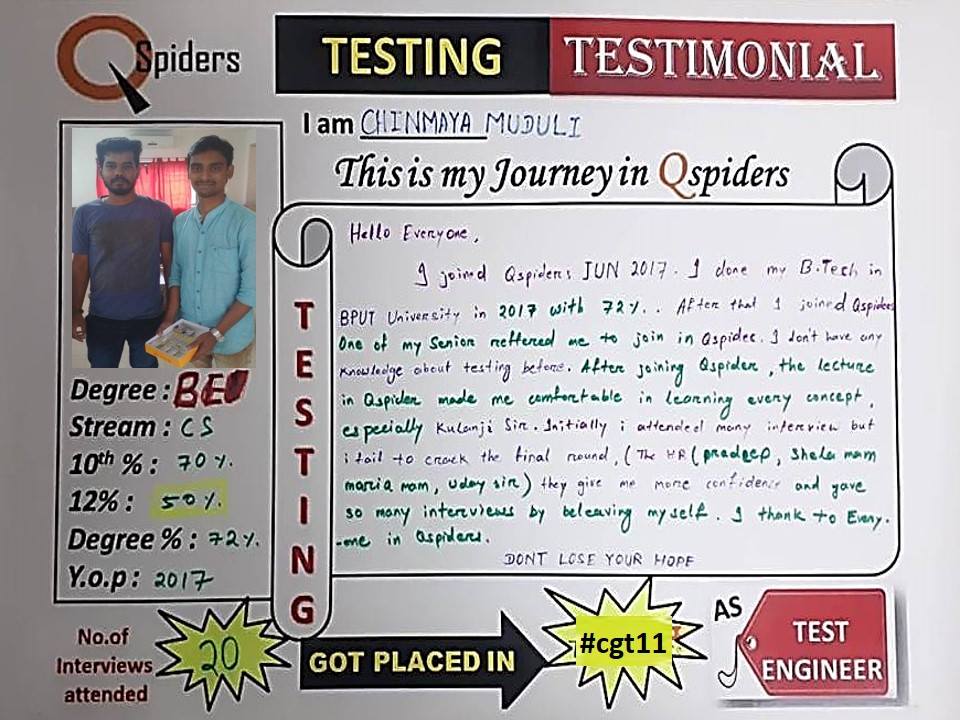 QSpiders
TESTING TESTIMONIAL
I am CHINMAYA MUDULI
This is my Journey in Qspiders
Hello Everyone,
I joined Qspiders JUN 2017. I done my B.Tech in
BPUT University in 2017 with 72%.. After that I joined Qspiders
One of my Senior reffered me to join in Qspider. I don't have any
knowledge about testing before. After joining Qspider, the lecture
in Qspider made me comfortable in learning every concept,
especially Kulanji Sir. Initially i attended many interview but
i fail to crack the final round, (The HR (pradeep, Shela mam
maria mam, Uday sir) they give me more confidence and gave
so many interviews by beleaving myself. I thank to Every.
-one in Qspiders.
DONT LOSE YOUR HOPE
TESTING
Degree : BE
Stream : CS
10th % : 70 %.
12% : 50%.
Degree % : 72%.
Y.o.p : 2017
No.of
Interviews
attended
20
GOT PLACED IN
#cgt11
AS
TEST
ENGINEER